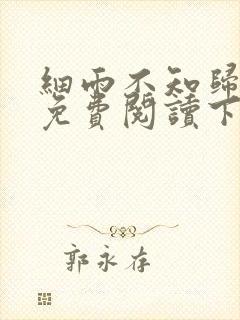 細雨不知歸
免費閱讀下
郭永存